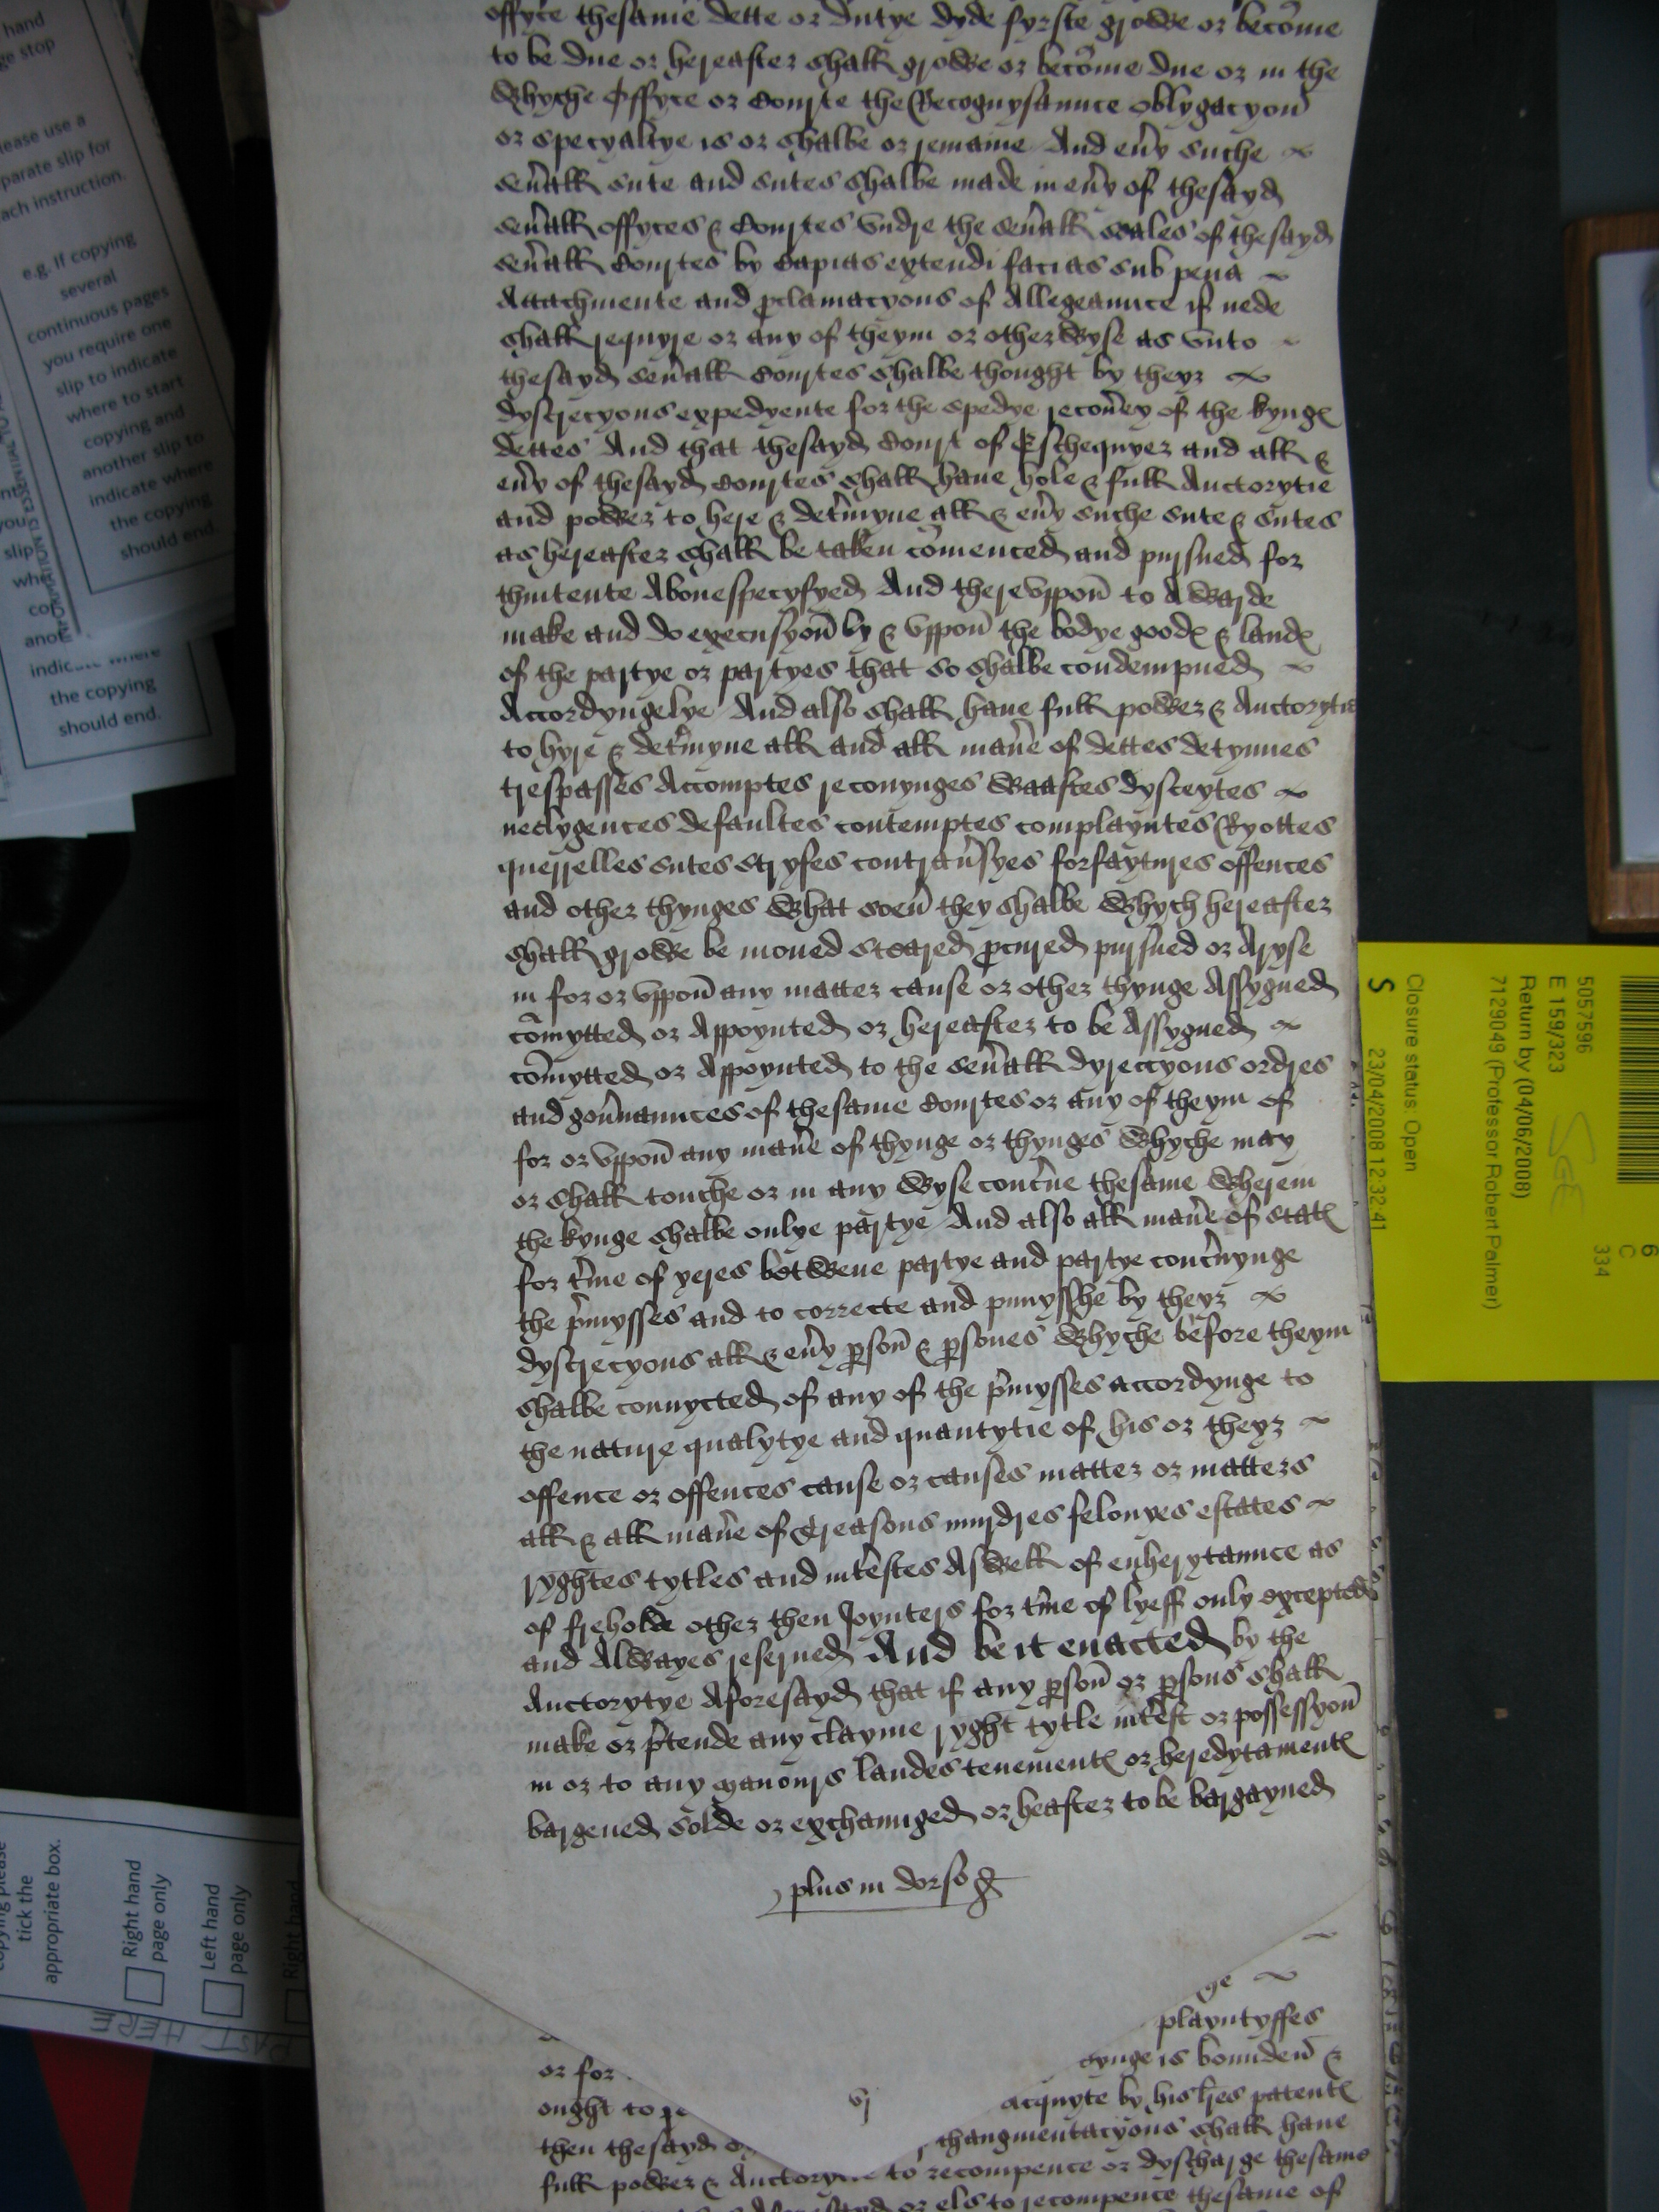 offyce thesame dette or dutye dyde fyrste growe or become
to be due or hereafter shall growe or become due or in the
Whyche Offyce or Courte the Recognysaunce oblygacyon
or specyaltye is or shalbe or remaine And eny suche
seuall sute and sutes shalbe made in eny of thesayd
seuall offyces & Courtes undre the seuall seales of thesayd
seuall Courtes by Capias extendi facias sub pena
Attachmente and pclamacyons of Allegeaunce if nede
shall requyre or any of theym or otherwyse as unto
thesayd seuall Courtes shalbe thought by theyr
dyscrecyons expedyente for the spedye recouey of the kynges
dettes And that thesayd Court of Eschequyer and all &
eny of thesayd Courtes shall haue hole & full Auctorytie
and power to here & detmyne all & eny suche sute & sutes
as hereafter shall be taken comenced and pursued for
thintente Abouespecyfyed And therevppon to Awarde
make and do execusyon by & vppon the bodye goodes & landes
of the partye or partyes that so shalbe condempned
Accordyngelye And also shall haue full power & Auctorytie
to hyre & detmyne all and all mane of dettes detynues
trespasses Accomptes reconynges Waastes dysceytes
neclygences defaultes contemptes complayntes Ryottes
querrelles sutes stryfes contrausyes forfaytures offences
and other thynges What soeu they shalbe Whych hereafter
shall growe be moued steared pcured pursued or Aryse
in for or vppon any matter cause or other thynge Assygned
comytted or Appoynted or hereafter to be Assygned
comytted or Appoynted to the seuall dyreccyons ordres
and gounaunces of thesame Courtes or any of theym of
for or vppon any mane of thynge or thynges Whyche may
or shall touche or in any Wyse concne thesame Wherein
the kynge shalbe onlye partye And also all mane of states
for tme of yeres betwene partye and partye concnynge
the pmysses and to correcte and punysshe by theyr
dyscrecyons all & eny pson & psones Whyche before theym
shalbe conuycted of any of the pmysses accordynge to
the nature qualytye and quantytie of his or theyr
offence or offences cause or causes matter or matters
all & all mane of treasons murdres felonyes estates
ryghtes tytles and intestes Aswell of enherytaunce as
of freholde other then Joynters for tme of lyeff only excepted
and Alwayes reserued And be it enacted by the
Auctorytye Aforesayd that if any pson or psons shall
make or ptende any clayme ryght tytle intest or possessyon
in or to any manours landes tenementes or heredytamentes
bargened solde or exchaunged or heafter to be bargayned
plus in dorso
vj
ge
playntyffes
or for
kynge is bounden &
ought to re
acquyte by his tres patentes
then thesayd
thaugmentacyons shall haue
full power & Auctorytie to recompence or dyscharge thesame
or els to recompence thesame of
5057596
E 159/323
SGE
Return by (04/06/2008)
7129049 (Professor Robert Palmer)
Closure status: Open
S 23/04/2008 12:32:41
6
C
334
hand
ge stop
lease use a
parate slip for
ach instruction.
e.g. If copying
several
continuous pages
you require one
slip to indicate
where to start
copying and
another slip to
indicate where
the copying
should end.
indicate where
the copying
should end.
please
tick the
appropriate box.
Right hand
page only
Left hand
page only
Right hand
PAST HERE